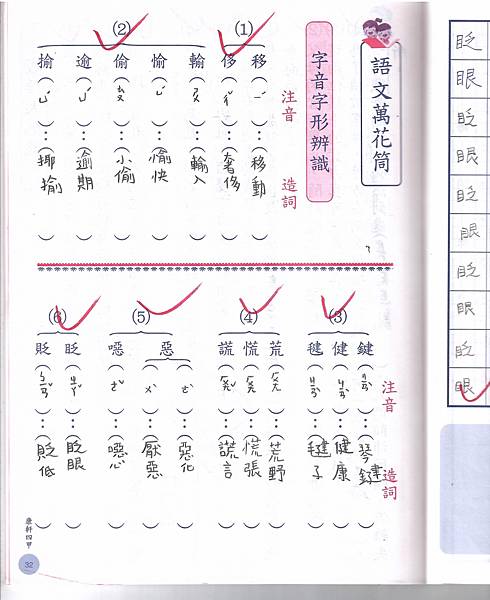 語文萬花筒
字音字形辨識
注音 造詞
(1)
移(ㄧˊ)：(移動)
侈(ㄔˇ)：(奢侈)
(2)
輸(ㄕㄨ)：(輸入)
愉(ㄩˊ)：(愉快)
偷(ㄊㄡ)：(小偷)
逾(ㄩˊ)：(逾期)
揄(ㄩˊ)：(揶揄)
注音 造詞
(3)
鍵(ㄐㄧㄢˋ)：(琴鍵)
健(ㄐㄧㄢˋ)：(健康)
毽(ㄐㄧㄢˋ)：(毽子)
(4)
荒(ㄏㄨㄤ)：(荒野)
慌(ㄏㄨㄤ)：(慌張)
謊(ㄏㄨㄤˇ)：(謊言)
(5)
惡(ㄜˋ)：(惡化)
(ㄨˋ)：(厭惡)
噁(ㄜˇ)：(噁心)
(6)
眨(ㄓㄚˇ)：(眨眼)
貶(ㄅㄧㄢˇ)：(貶低)
康軒四甲
32
眨
眼
眨
眼
眨
眼
眨
眼
眨
眼